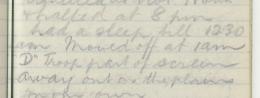 & halted at 8 pm
had a sleep till 1230
am. Moved off at 1am
"D" Troop part of screen
away out on the plains
on our own